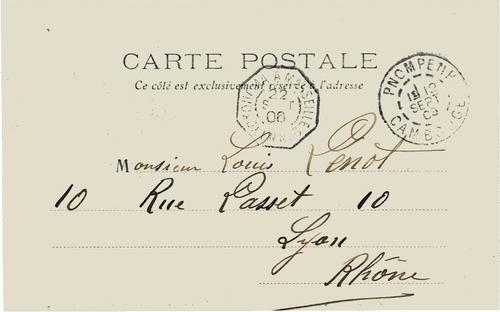 CARTE POSTALE
Ce côté est exclusivement réservé à l'adresse
YOKOHAMA A MARSEILLE
22
SEPT
06
PNOMPENH
12
SEPT
CAMBODGE
Monsieur Louis Penot
10 Rue Passet 10
Lyon
Rhône